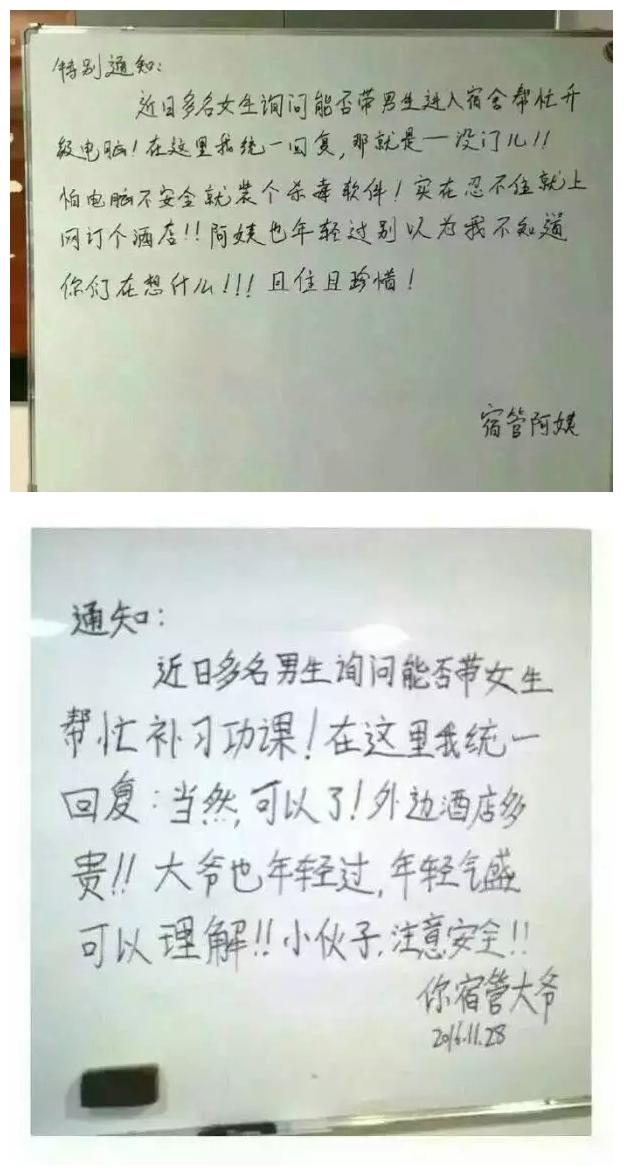 特别通知：
近日多名女生询问能否带男生进入宿舍帮忙升
级电脑！在这里我统一回复，那就是一没门儿！！
怕电脑不安全就装个杀毒软件！实在忍不住就上
网订个酒店！！阿姨也年轻过别以为我不知道
你们在想什么！！！且住且珍惜！
宿管阿姨
通知：
近日多名男生询问能否带女生
帮忙补习功课！在这里我统一
回复：当然，可以了！外边酒店多
贵！！大爷也年轻过，年轻气盛
可以理解！！小伙子，注意安全！！
你宿管大爷
2016.11.28